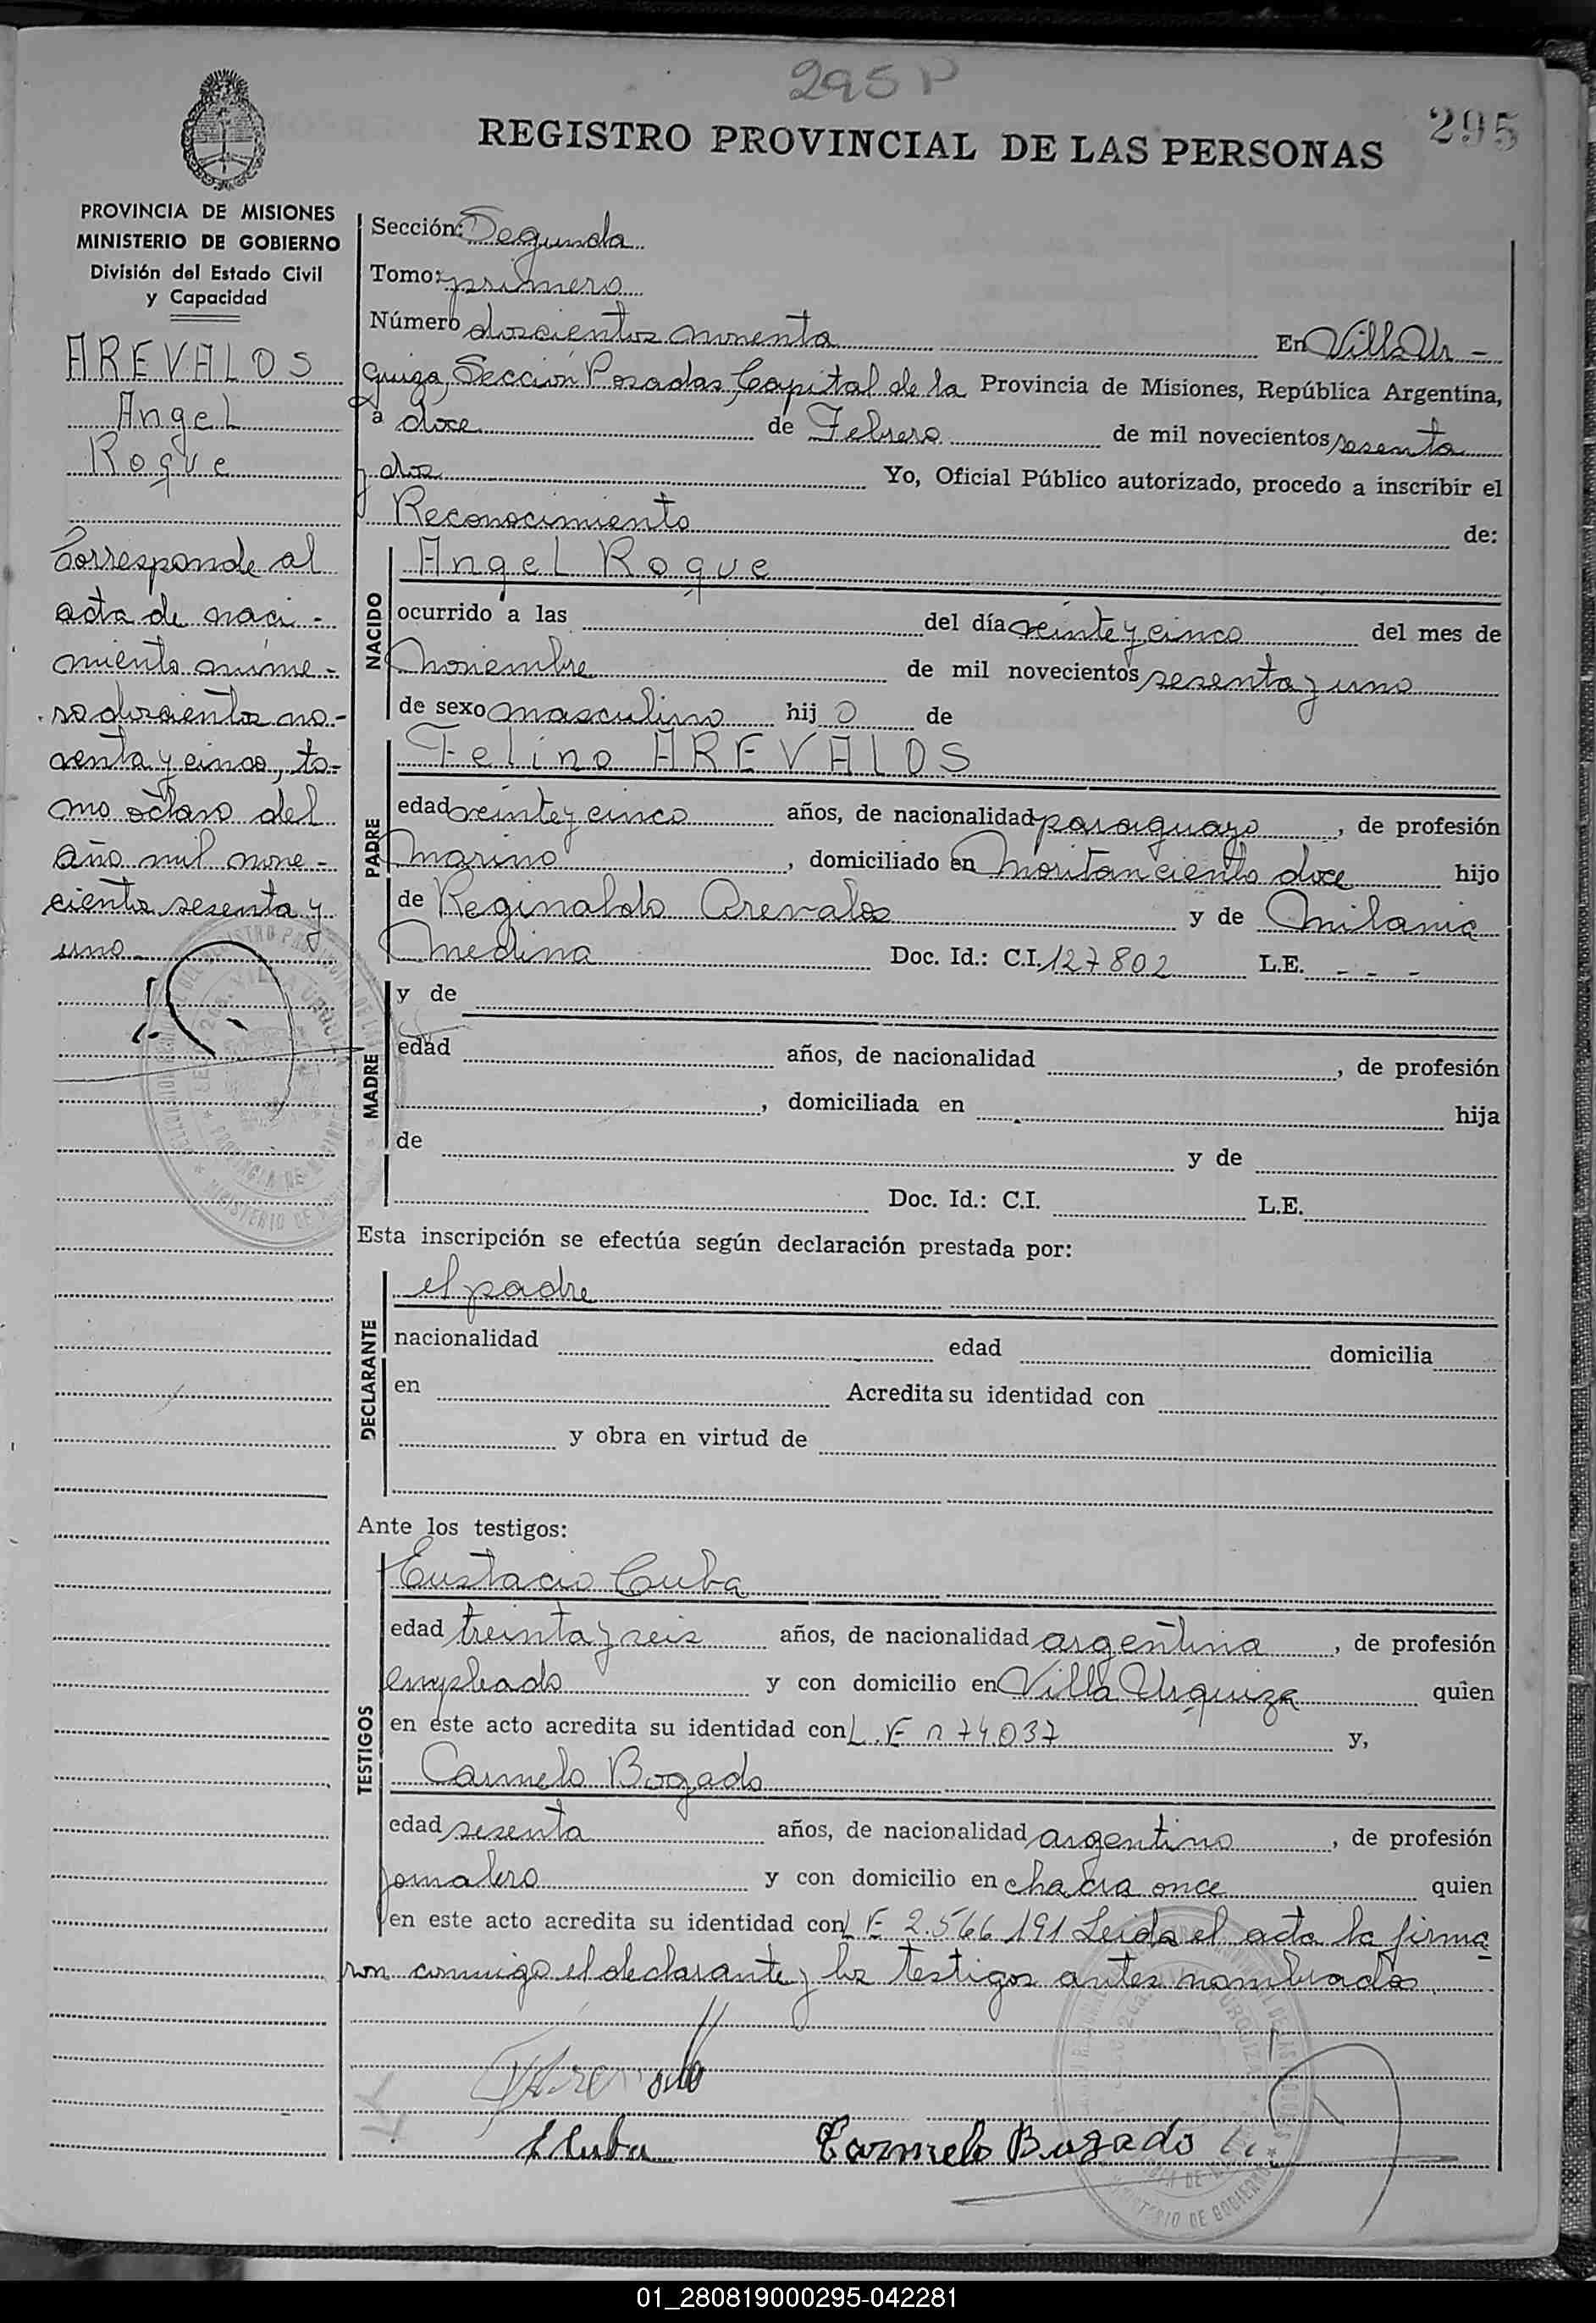 295 P
295
REGISTRO PROVINCIAL DE LAS PERSONAS
PROVINCIA DE MISIONES
MINISTERIO DE GOBIERNO
División del Estado Civil
y Capacidad
AREVALOS
Angel
Roque
Corresponde al
acta de naci-
miento núme-
ro doscientos no-
venta y cinco, to-
mo octavo del
año mil nove-
cientos sesenta y
uno
Sección: Segunda
Tomo: primero
Número doscientos noventa En Villa Ur-
quiza, Sección Posadas, Capital de la Provincia de Misiones, República Argentina,
a doce de Febrero de mil novecientos sesenta
y dos Yo, Oficial Público autorizado, procedo a inscribir el
Reconocimiento de:
NACIDO
Angel Roque
ocurrido a las del día veinte y cinco del mes de
noviembre de mil novecientos sesenta y uno
de sexo masculino hij o de
PADRE
Felino AREVALOS
edad veinte y cinco años, de nacionalidad paraguayo, de profesión
marino, domiciliado en Moritan ciento doce hijo
de Reginaldo Arevalos y de Milania
Medina Doc. Id.: C.I. 127802 L.E. - - -
MADRE
y de
edad años, de nacionalidad , de profesión
, domiciliada en hija
de y de
Doc. Id.: C.I. L.E.
Esta inscripción se efectúa según declaración prestada por:
DECLARANTE
el padre
nacionalidad edad domicilia
en Acredita su identidad con
y obra en virtud de
Ante los testigos:
TESTIGOS
Eustacio Cuba
edad treinta y seis años, de nacionalidad argentina, de profesión
empleado y con domicilio en Villa Urquiza quien
en este acto acredita su identidad con L.E n 74.037 y,
Carmelo Bogado
edad sesenta años, de nacionalidad argentino, de profesión
jornalero y con domicilio en chacra once quien
en este acto acredita su identidad con L E 2.566.191 Leida el acta la firma
ron conmigo el declarante y los testigos antes nombrados
E Cuba Carmelo Bogado
01_280819000295-042281